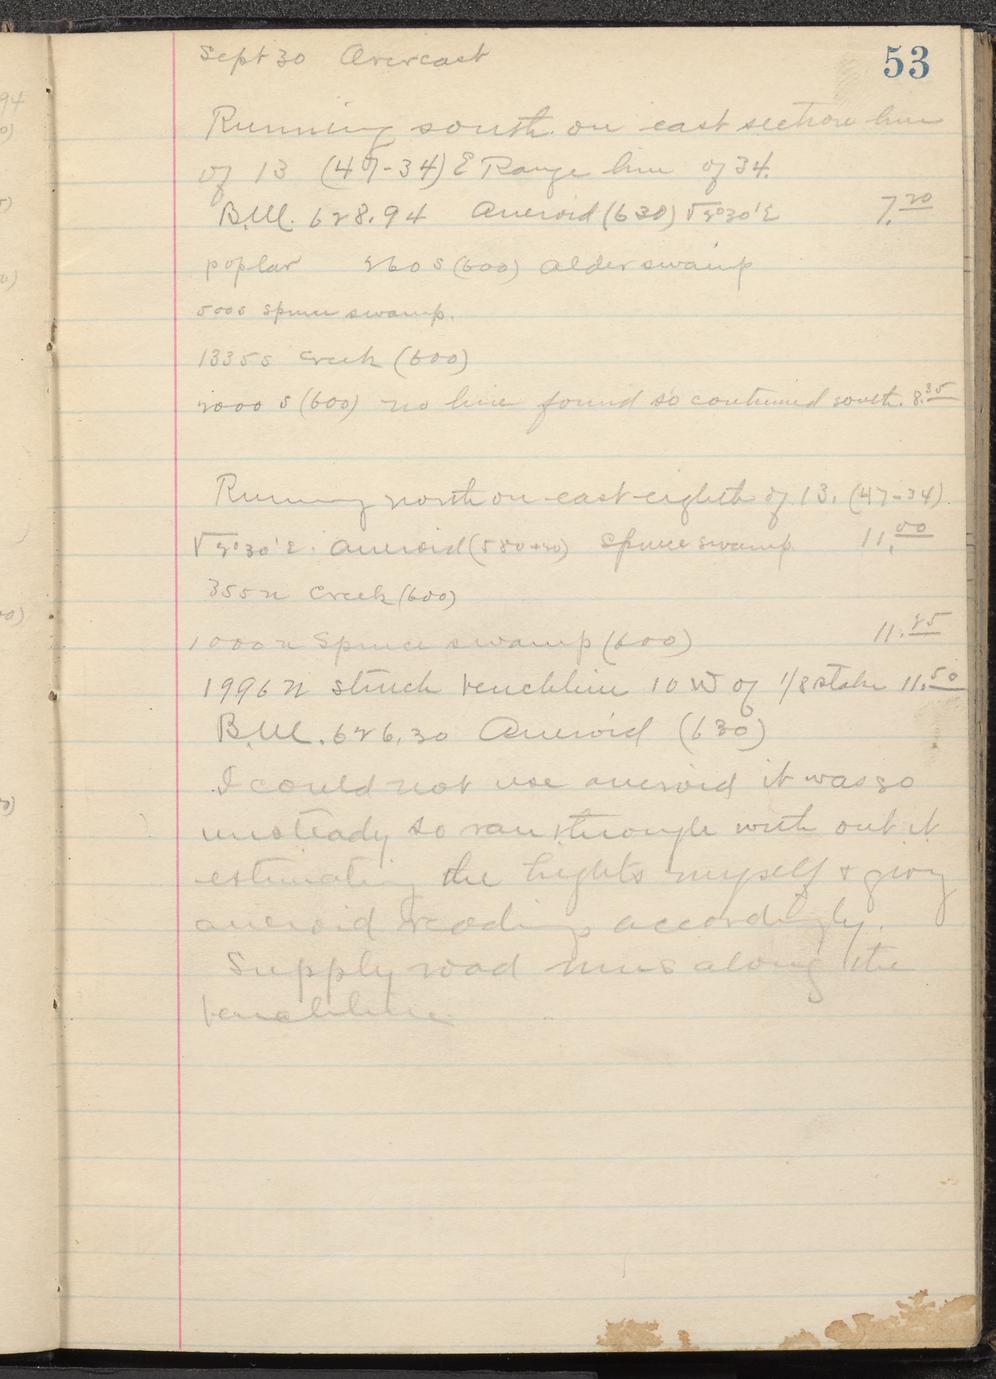 53
Sept 30 Overcast
Running south on east section line
of 13 (47-34) E Range line of 34.
B.M. 628.94 Aneroid (630) V 2°30'E 7.20
poplar 260 S (600) alder swamp
500 S spruce swamp.
1335 S creek (600)
2000 S (600) no line found so continued south. 8.35
Running north on east eighth of 13. (47-34).
V 2°30'E. aneroid (580+20) Spruce swamp 11.00
355 N creek (600)
1000 N Spruce swamp (600) 11.25
1996 N struck benchline 10 W of 1/8 stake 11.50
B.M. 626.30 Aneroid (630)
I could not use aneroid it was so
unsteady so ran through with out it
estimating the hights myself & giving
aneroid readings accordingly.
Supply road runs along the
benchline